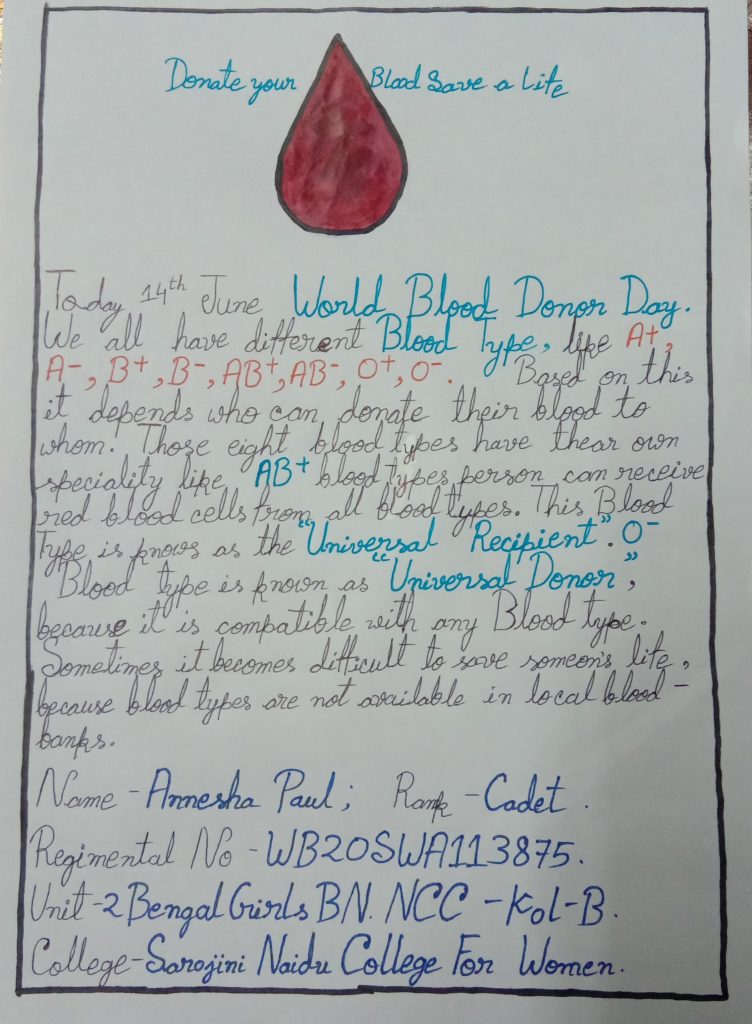 Donate your Blood Save a Life
Today 14th June World Blood Donor Day.
We all have different Blood Type, like A+,
A-, B+, B-, AB+, AB-, O+, O-. Based on this
it depends who can donate their blood to
whom. Those eight blood types have thear own
speciality like AB+ blood types person can receive
red blood cells from all blood types. This Blood
Type is knows as the "Universal Recipient". O-
Blood type is known as "Universal Donor",
because it is compatible with any Blood type.
Sometimes it becomes difficult to save someon's life,
because blood types are not available in local blood-
banks.
Name - Annesha Paul; Rank - Cadet.
Regimental No - WB20SWA113875.
Unit - 2 Bengal Girls BN. NCC - Kol-B.
College - Sarojini Naidu College For Women.